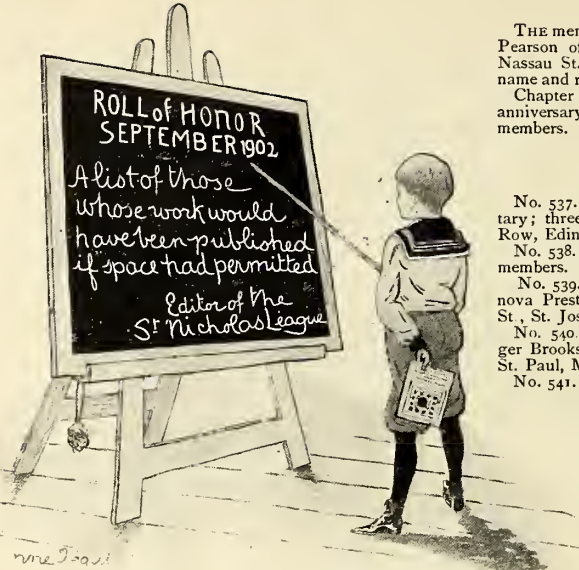 ROLL of HONOR
SEPTEMBER 1902
A list of those
whose work would
have been published
if space had permitted
Editor of the
St Nicholas League
THE
Pearson
Nassau St.
name and
Chapter
anniversary
members.
No. 537.
tary; three
Row,
No. 538.
members.
No. 539.
nova
St., St.
No. 540.
ger Brooks
St. Paul,
No. 541.